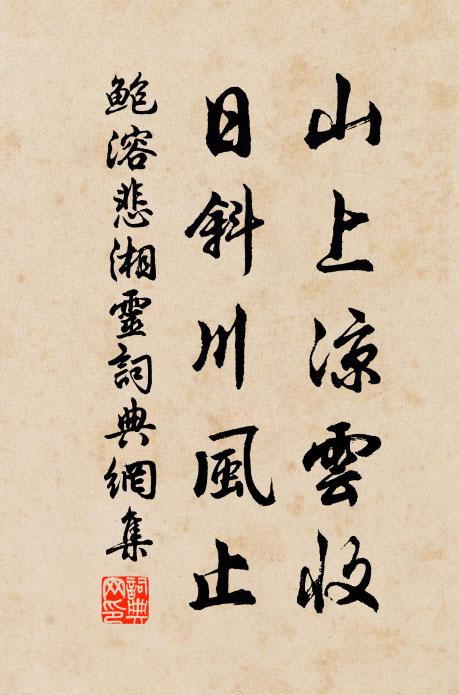 山上涼雲收
日斜川風止
鮑溶悲湘靈詞典網集
詞典網印